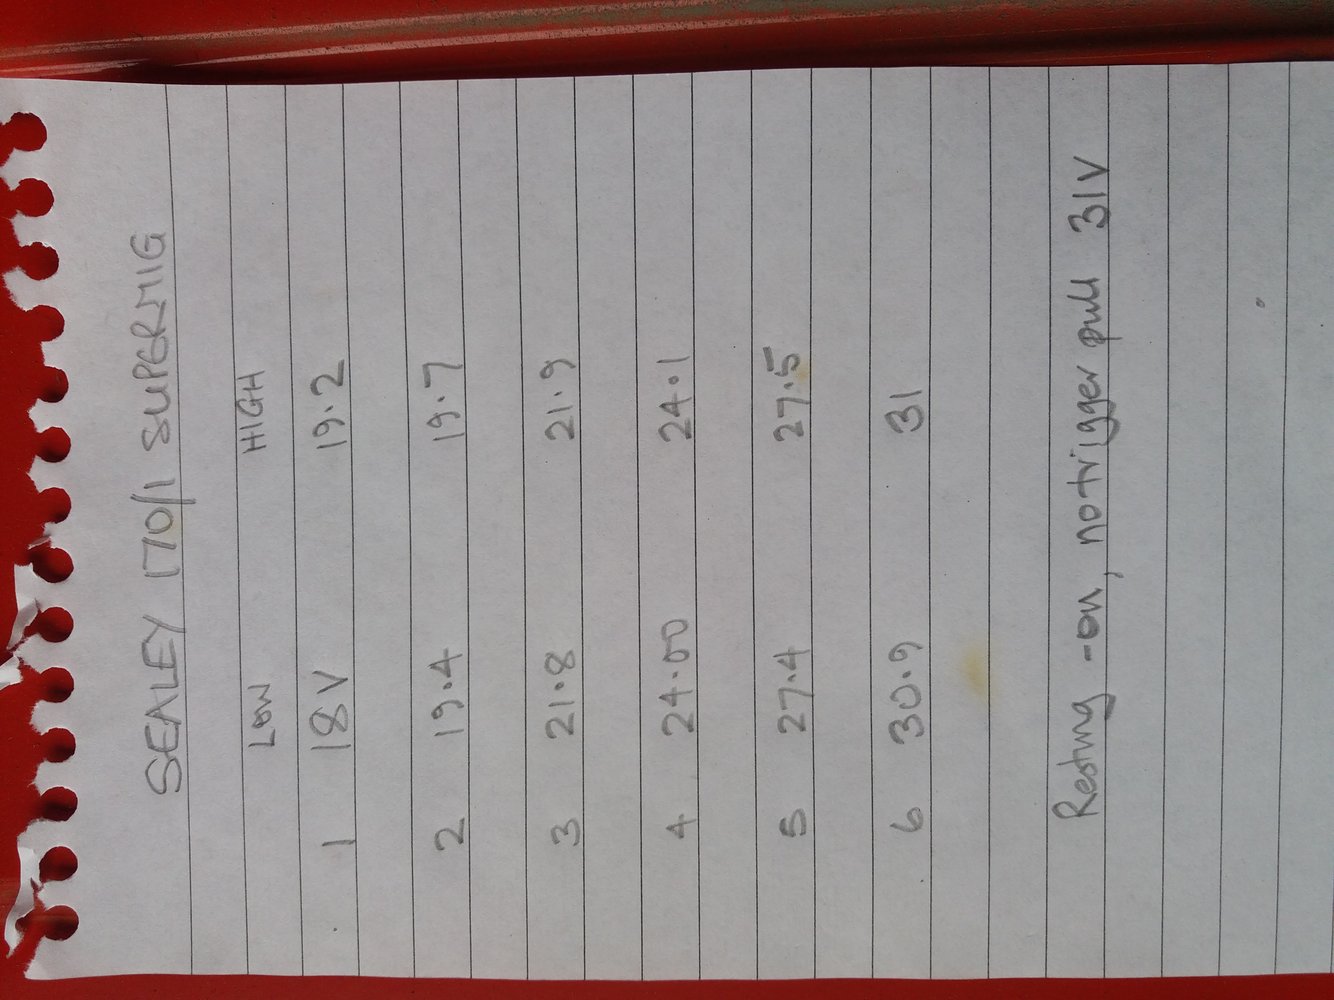 SEALEY 170/1 SUPERMIG
LOW HIGH
1 18V 19.2
2 19.4 19.7
3 21.8 21.9
4 24.00 24.1
5 27.4 27.5
6 30.9 31
Resting - on, no trigger pull 31V